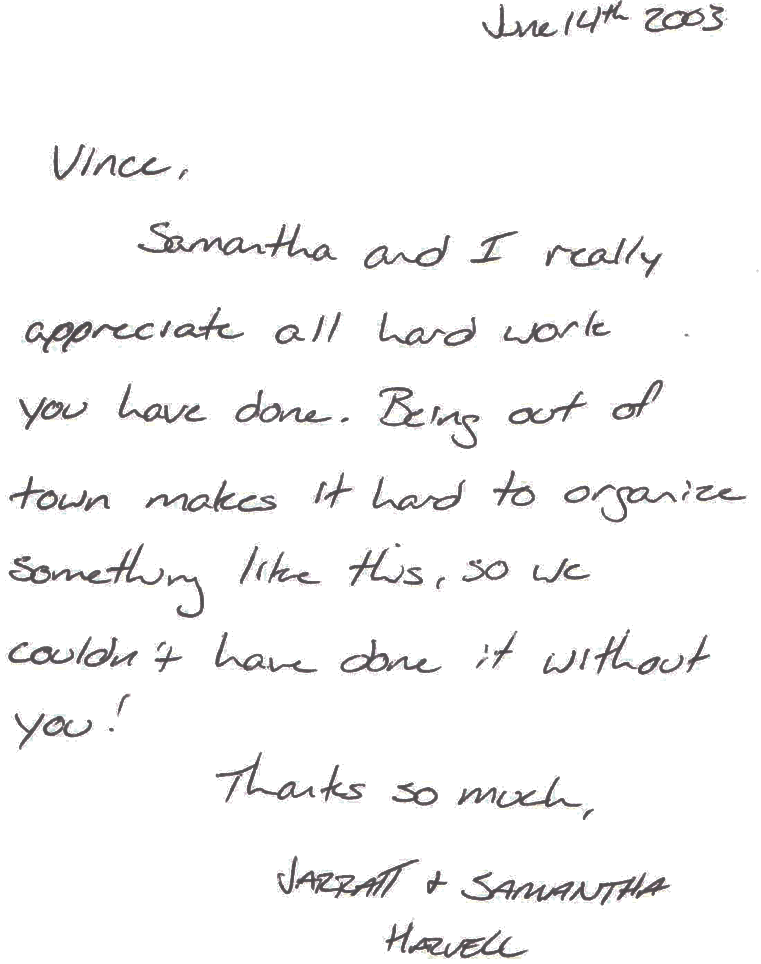 June 14th 2003
Vince,
Samantha and I really
appreciate all hard work
you have done. Being out of
town makes it hard to organize
something like this, so we
couldn't have done it without
you!
Thanks so much,
JARRATT & SAMANTHA
HARVELL